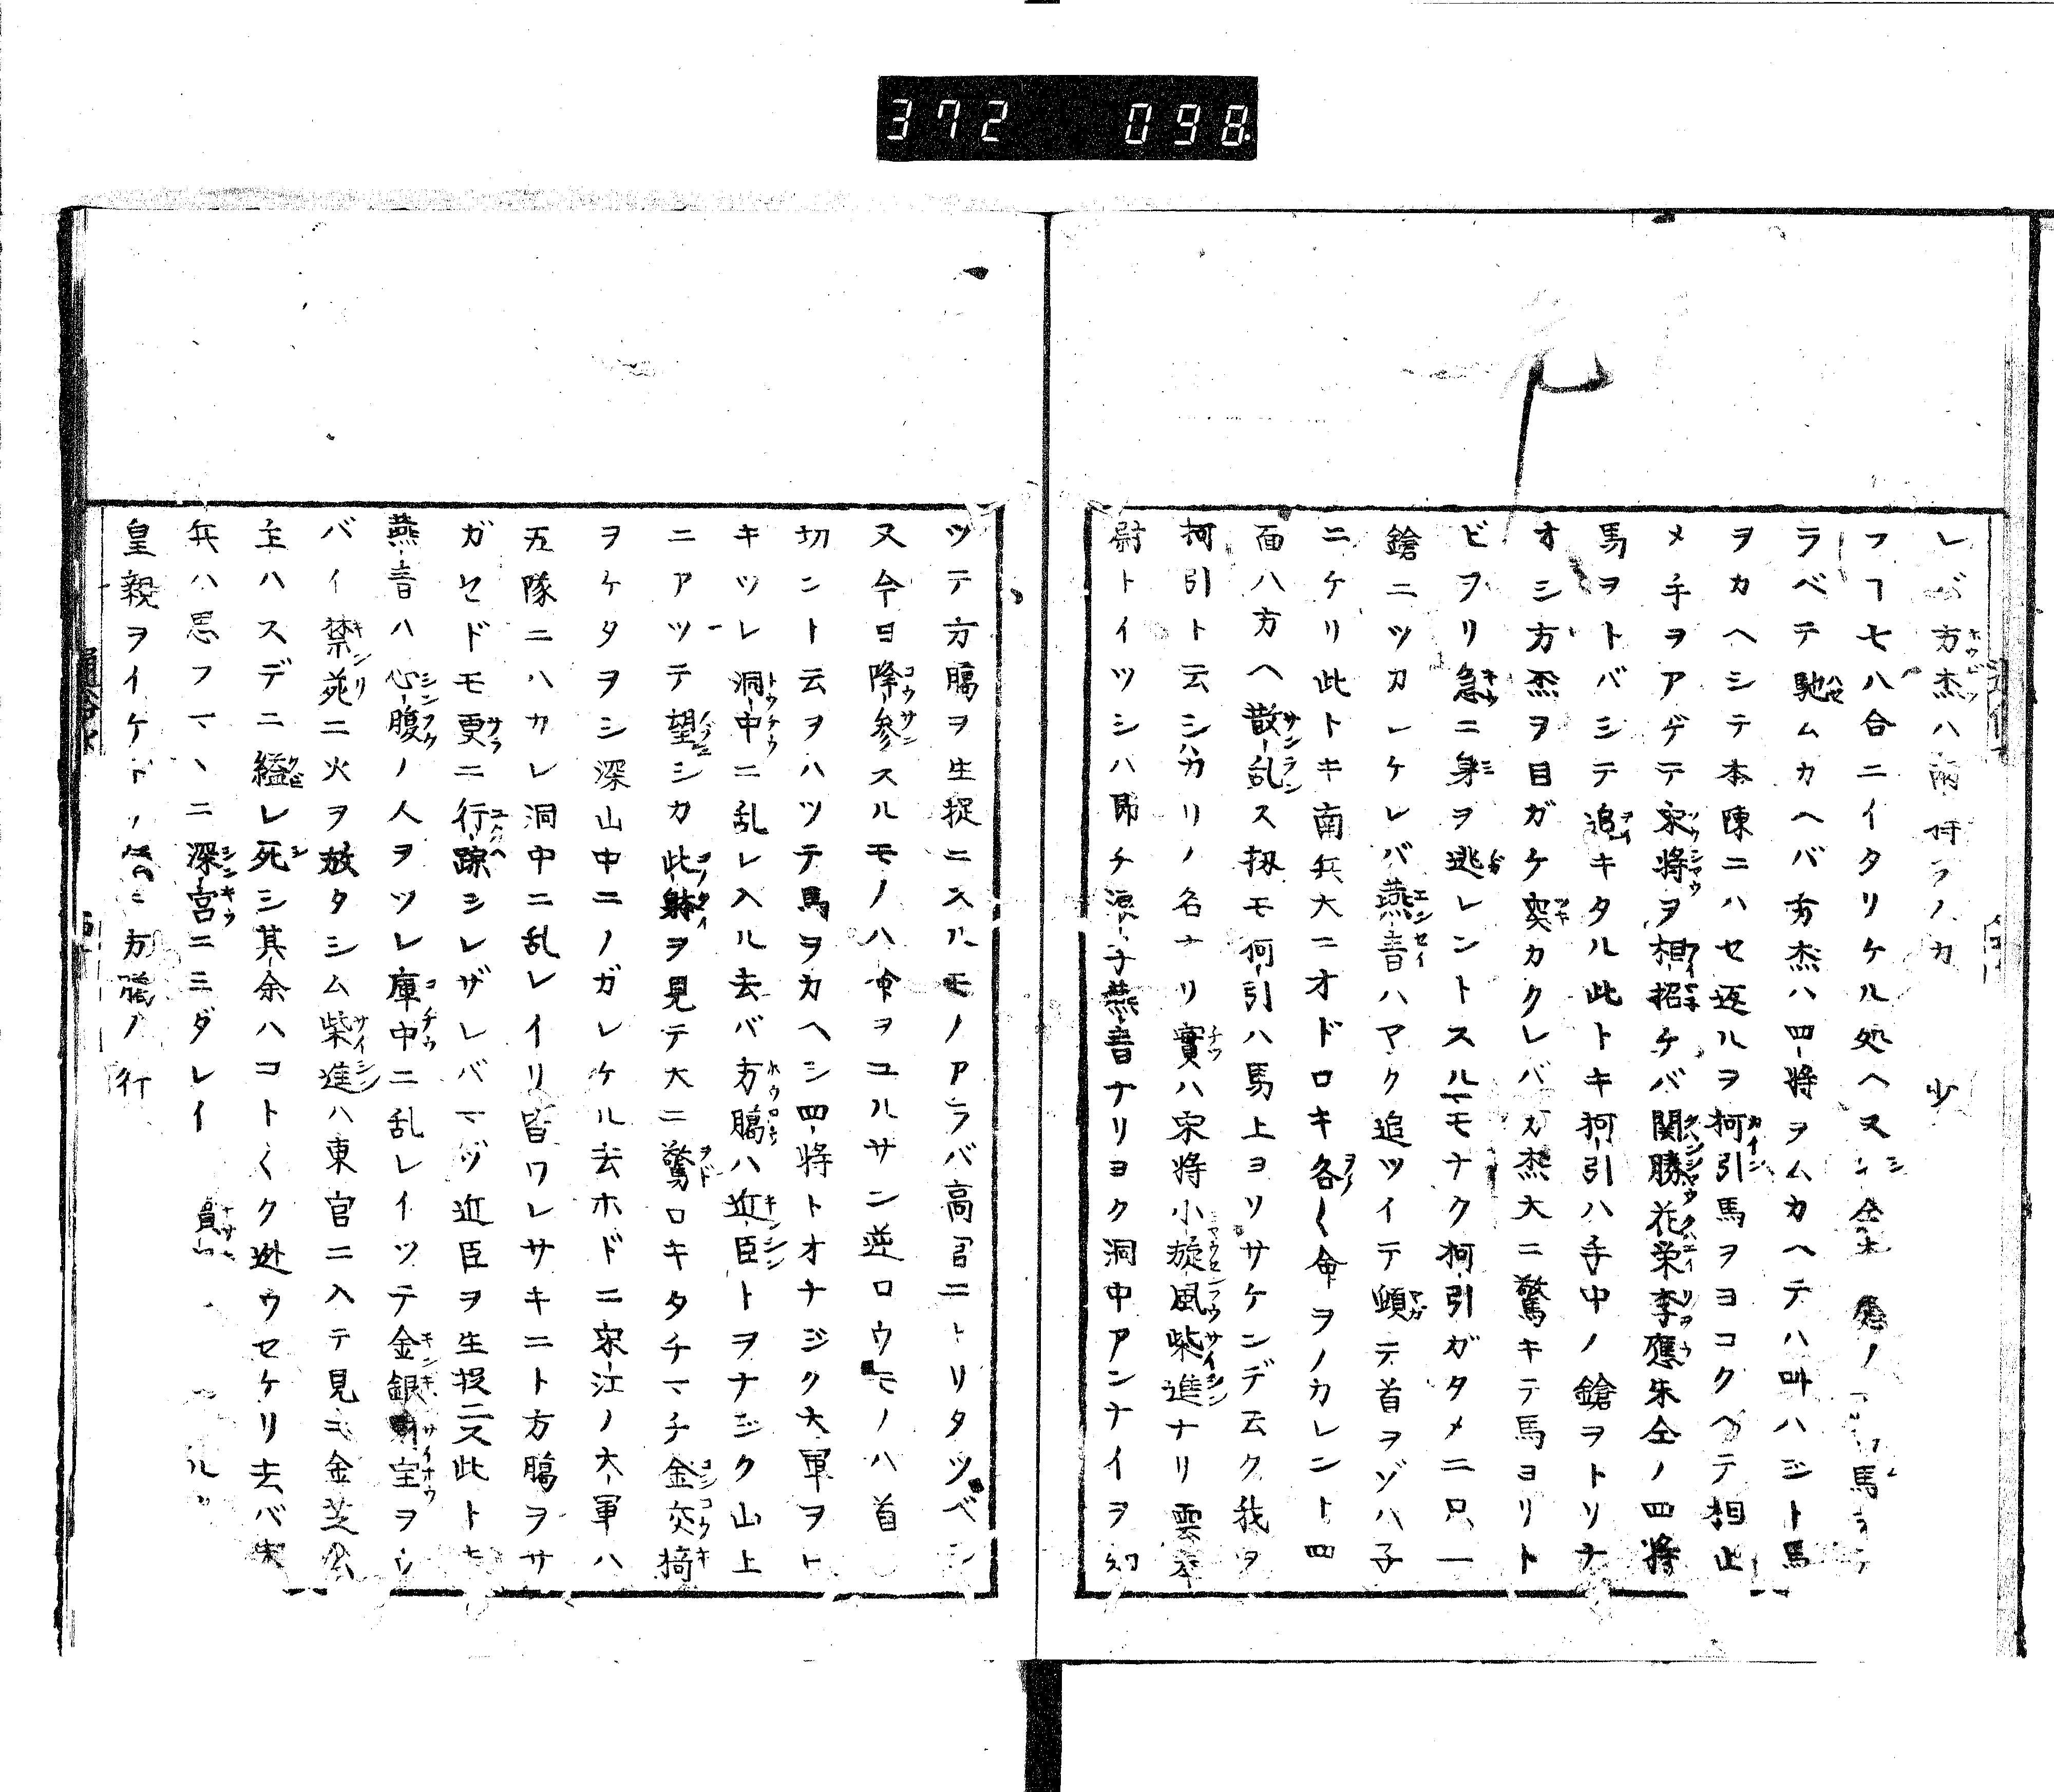 372 098
レバ方杰ハ両将ヲノカ 少
フヿ七八合ニイタリケル処ヘ 馬
ラベテ馳ムカヘバ方杰ハ四将ヲムカヘテハ叫ハジト馬
ヲカヘシテ本陳ニハセ返ルヲ柯引馬ヲヨコクヘテ相止
メ手ヲアゲテ宋将ヲ相招ケバ関勝花栄李應朱仝ノ四将
馬ヲトバシテ追キタル此トキ柯引ハ手中ノ鎗ヲトリナ
オシ方杰ヲ目ガケ突カクレバ方杰大ニ驚キテ馬ヨリト
ビヲリ急ニ身ヲ逃レントスルヿモナク柯引ガタメニ只一
鎗ニツカレケレバ燕青ハヤク追ツイテ頓テ首ヲゾハ子
ニケリ此トキ南兵大ニオドロキ各〱命ヲノカレント四
面八方ヘ散乱ス扨モ何引ハ馬上ヨリサケンデ云ク我ヲ
柯引ト云シハカリノ名ナリ實ハ宋将小旋風柴進ナリ雲奉
尉トイツシハ即チ浪子燕青ナリヨク洞中アンナイヲ知
ツテ方臈ヲ生捉ニスルモノアラバ高官ニトリタツベシ
又今日降参スルモノハ命ヲユルサン逆ロウモノハ首
切ント云ヲハツテ馬ヲカヘシ四将トオナジク大軍ヲト
キツレ洞中ニ乱レ入ル去バ方臈ハ近臣トヲナジク山上
ニアツテ望シカ此躰ヲ見テ大ニ驚ロキタチマチ金交猗
ヲケタヲシ深山中ニノガレケル去ホドニ宋江ノ大軍ハ
五隊ニハカレ洞中ニ乱レイリ皆ワレサキニト方臈ヲサ
ガセドモ更ニ行踪シレザレバマヅ近臣ヲ生捉ニス此トキ
燕青ハ心腹ノ人ヲツレ庫中ニ乱レイツテ金銀財宝ヲウ
バイ禁苑ニ火ヲ放タシム柴進ハ東宮ニ入テ見キ金芝公
主ハスデニ縊レ死シ其余ハコト〱ク逃ウセケリ去バ宋
兵ハ思フマヽニ深宮ニミダレイ
皇親ヲイケドノ 方臈ノ行